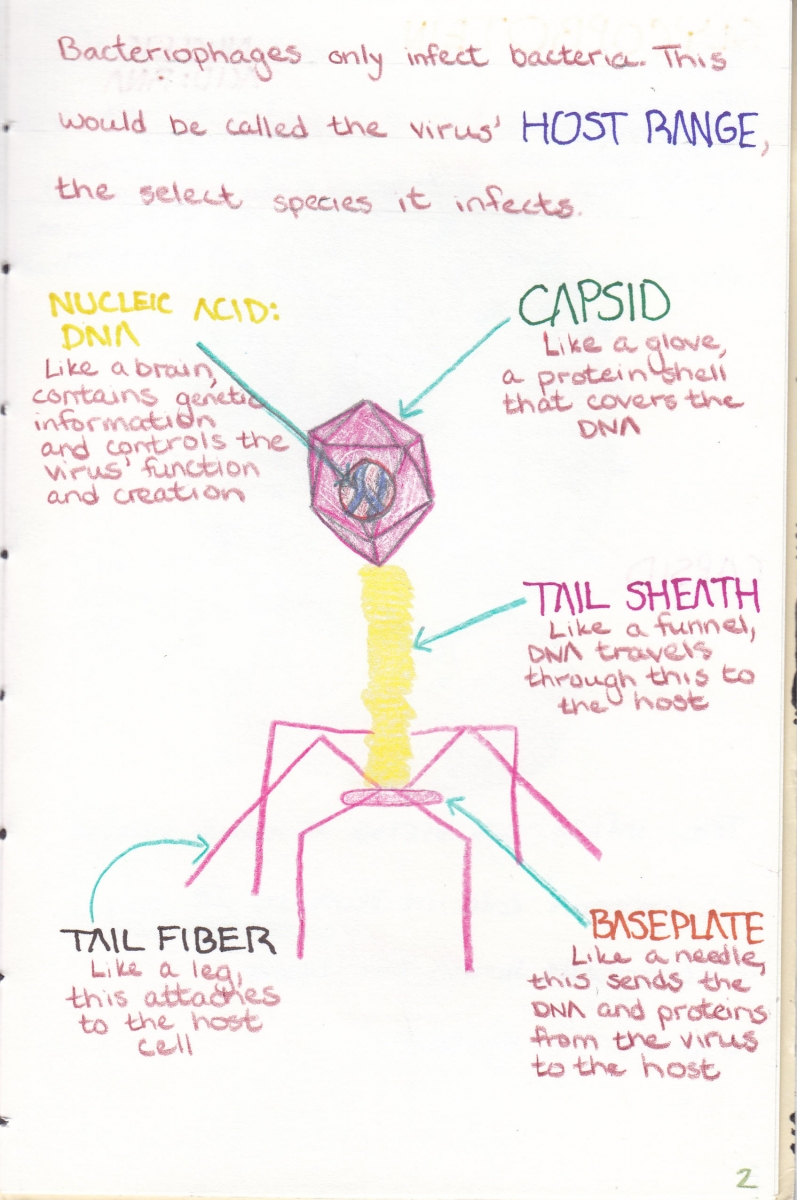 Bacteriophages only infect bacteria. This
would be called the virus' HOST RANGE,
the select species it infects.
NUCLEIC ACID:
DNA
Like a brain,
contains genetic
information
and controls the
virus' function
and creation
CAPSID
Like a glove,
a protein shell
that covers the
DNA
TAIL SHEATH
Like a funnel,
DNA travels
through this to
the host
TAIL FIBER
Like a leg,
this attaches
to the host
cell
BASEPLATE
Like a needle,
this sends the
DNA and proteins
from the virus
to the host
2